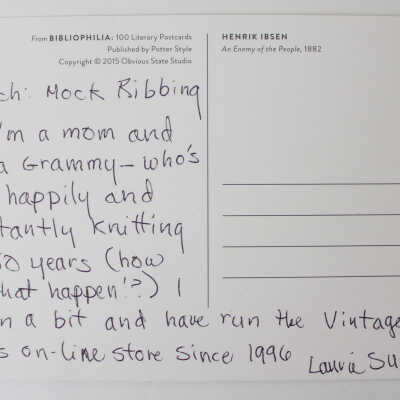 From BIBLIOPHILIA: 100 Literary Postcards
Published by Potter Style
Copyright © 2015 Obvious State Studio
HENRIK IBSEN
An Enemy of the People, 1882
ch: Mock Ribbing
'm a mom and
a Grammy – who's
happily and
tantly knitting
50 years (how
hat happen!?) I
n a bit and have run the Vintage
s on-line store since 1996
Laurie Su